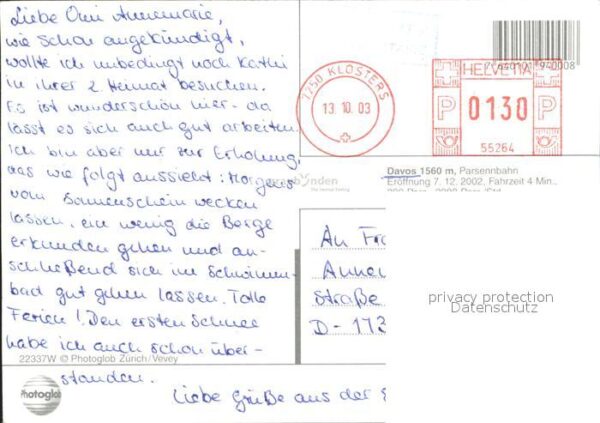 Liebe Omi Annemarie,
wie schon angekündigt,
wollte ich unbedingt noch Kathi
in ihrer 2. Heimat besuchen.
Es ist wunderschön hier - da
lässt es sich auch gut arbeiten.
Ich bin aber nur zur Erholung,
das wie folgt aussieht: Morgens
vom Sonnenschein wecken
lassen, ein wenig die Berge
erkunden gehen und an-
schließend sich im Schwimm-
bad gut gehen lassen. Tolle
Ferien! Den ersten Schnee
habe ich auch schon über-
standen.
Liebe Grüße aus der S
22337W © Photoglob Zürich/Vevey
Photoglob
7250 KLOSTERS
13.10.03
HELVETIA
P 0130 P
55264
Davos 1560 m, Parsennbahn
Eröffnung 7. 12. 2002, Fahrzeit 4 Min.,
An Fra
Annem
Straße
D- 173
privacy protection
Datenschutz